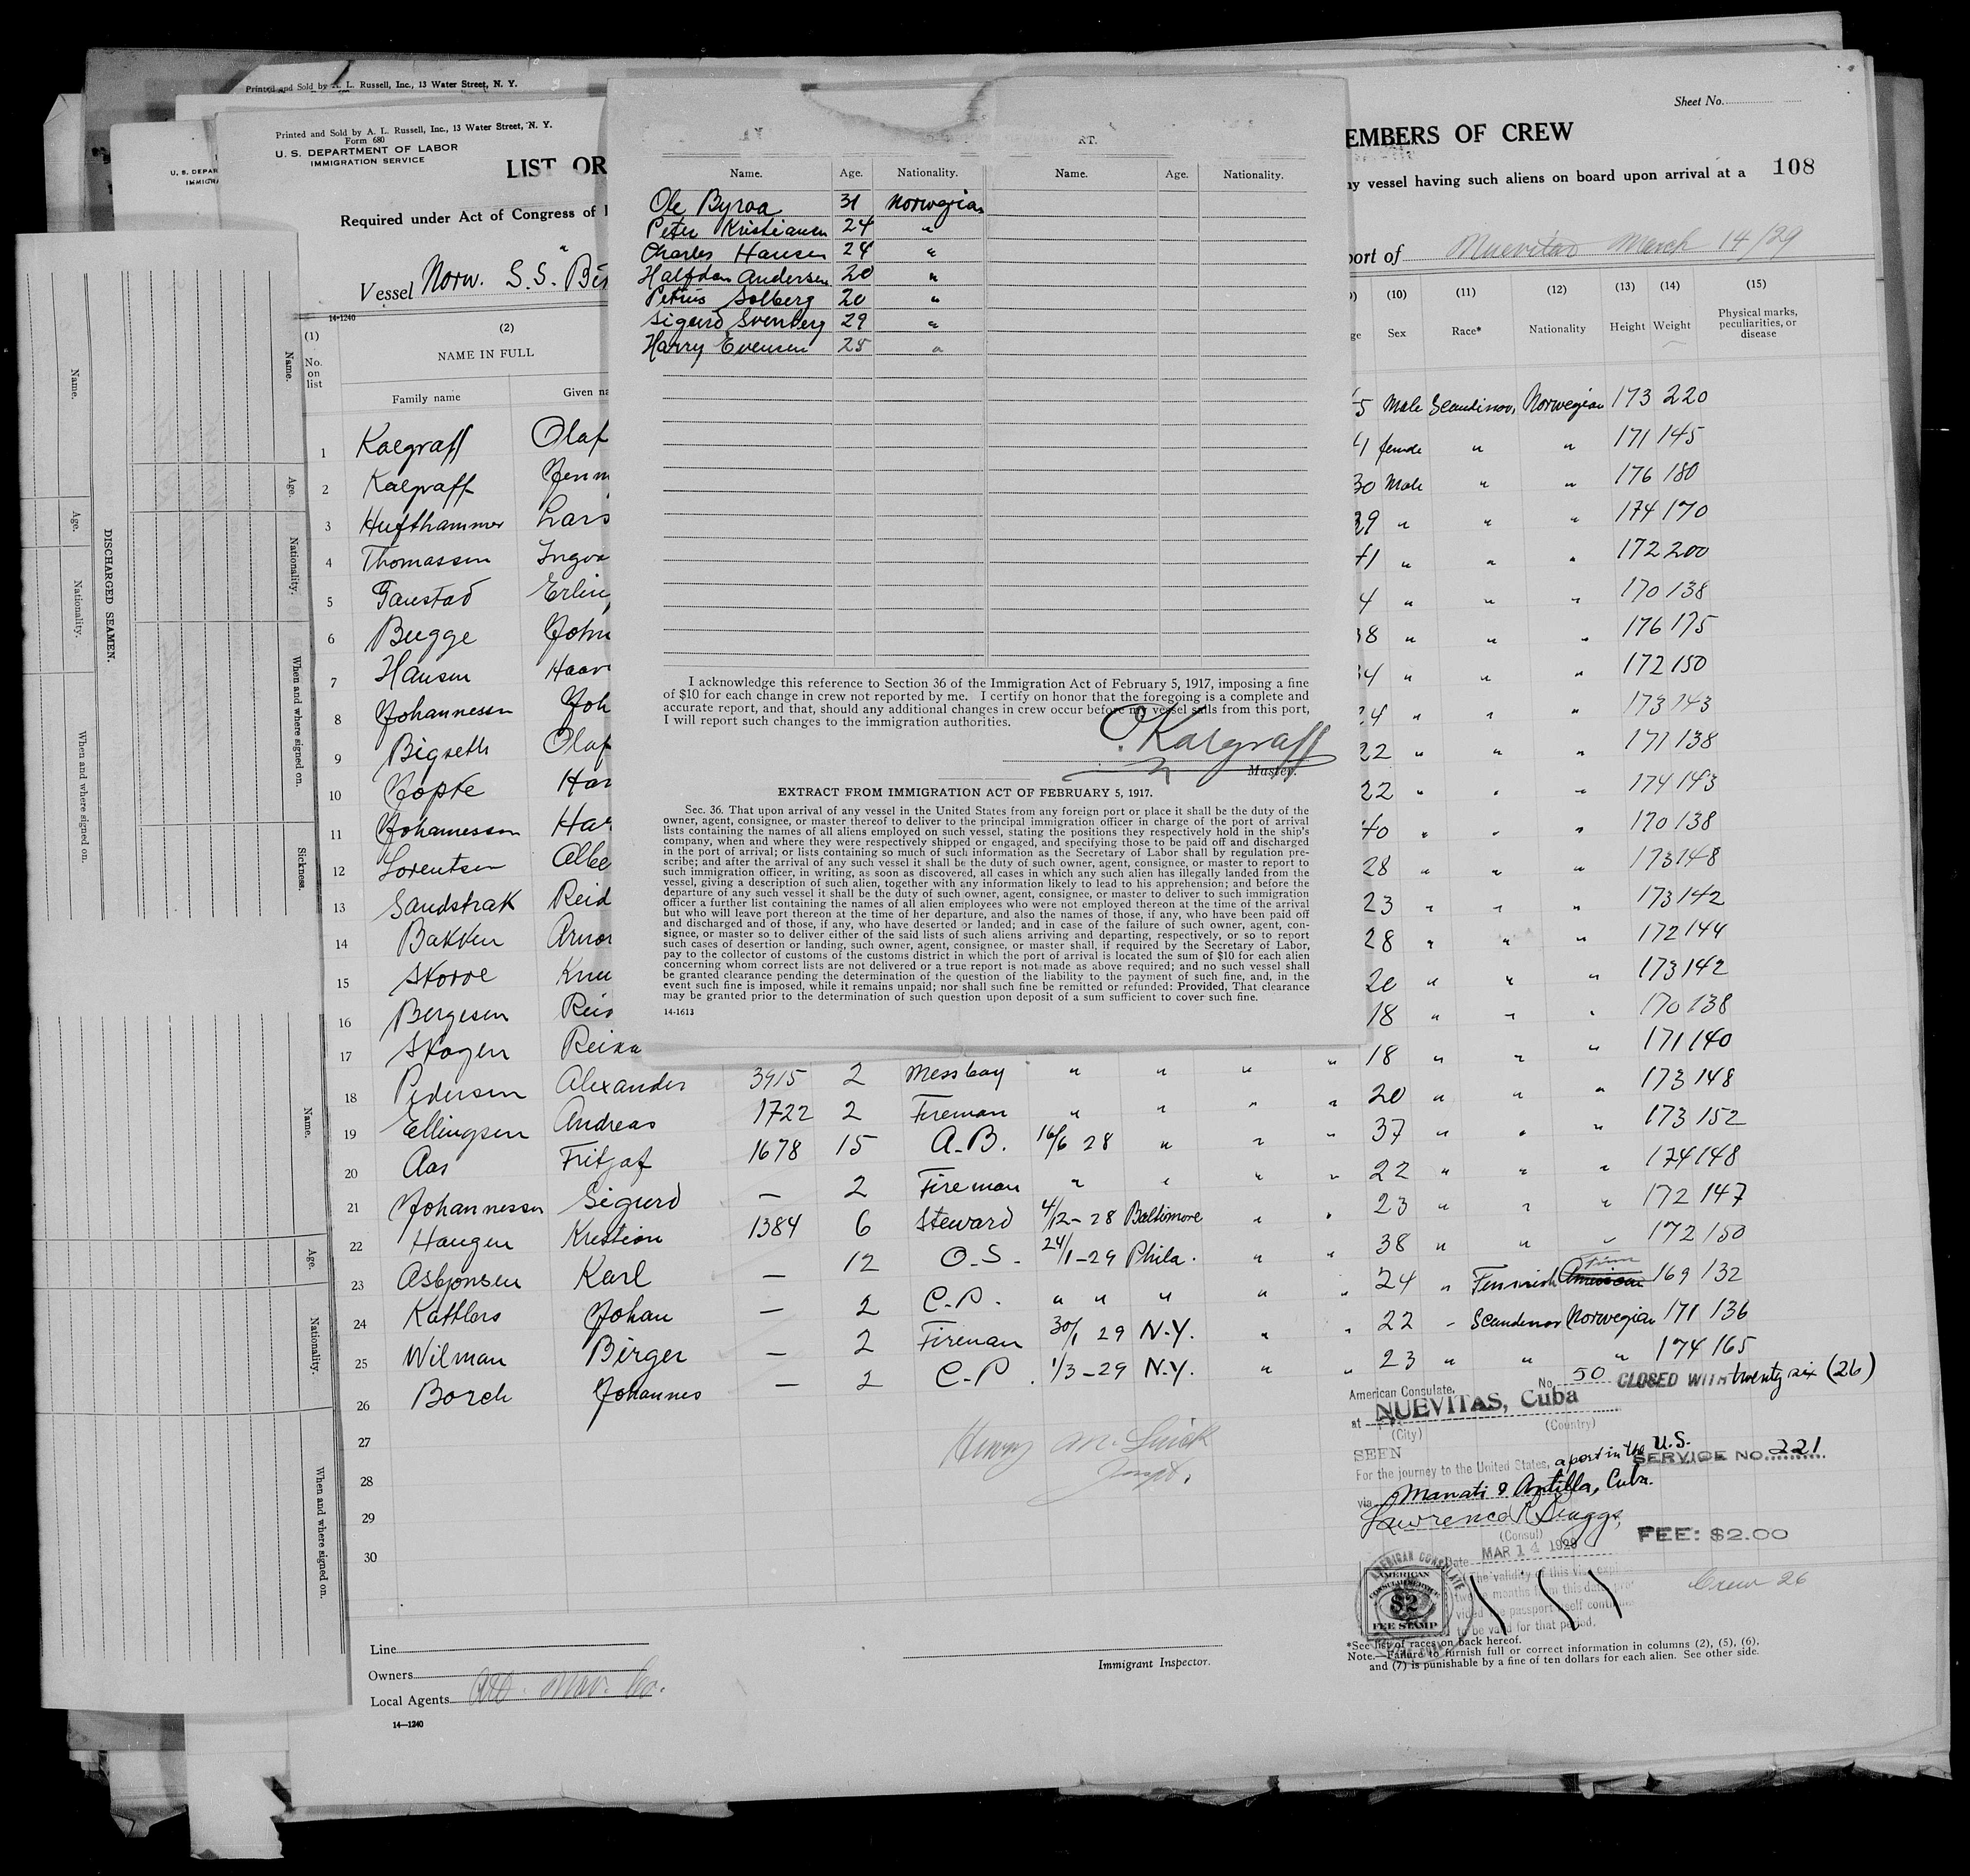 Printed and Sold by A. L. Russell, Inc., 13 Water Street, N. Y.
Printed and Sold by A. L. Russell, Inc., 13 Water Street, N. Y.
Form 680
U. S. DEPARTMENT OF LABOR
IMMIGRATION SERVICE
U. S. DEPAR
IMMIGRA
LIST OR
Required under Act of Congress of
Vessel Norw. S.S.
14-1240
(1) (2)
No. on list
NAME IN FULL
Family name Given na
1 Kalgraff Olaf
2 Kalgraff
3 Hufthammer Lars
4 Thomassen
5
6 Bugge John
7 Hansen
8 Johannessen Joh
9 Bigseth Olaf
10 Har
11 Johannessen Har
12 Lorentsen
13 Sandstrak Reid
14 Bakken
15
16 Bergesen
17 Skogen
18 Pedersen Alexander 3915 2 Messboy " " " "
19 Ellingsen Andreas 1722 2 Fireman " " " "
20 Aas Fritjof 1678 15 A.B. 16/6 28 " " "
21 Johannessen Sigurd — 2 Fireman " " " "
22 Haugen Kristian 1384 6 Steward 4/12-28 Baltimore " "
23 Asbjonsen Karl — 12 O.S. 24/1-29 Phila. " "
24 Kattlers Johan — 2 C.P. " " " " "
25 Wilman Birger — 2 Fireman 30/1 29 N.Y. " "
26 Borch Johannes — 2 C.P. 1/3-29 N.Y. " "
27
28
29
30
Line
Owners
Local Agents
14—1240
Immigrant Inspector.
RT.
Name. Age. Nationality. Name. Age. Nationality.
Ole Byraa 31 Norwegian
Peter Kristiansen 24 "
Charles Hansen 24 "
Halfdan Andersen 20 "
Petrus Solberg 20 "
Sigurd Svenberg 29 "
Harry Evensen 25 "
I acknowledge this reference to Section 36 of the Immigration Act of February 5, 1917, imposing a fine
of $10 for each change in crew not reported by me. I certify on honor that the foregoing is a complete and
accurate report, and that, should any additional changes in crew occur before my vessel sails from this port,
I will report such changes to the immigration authorities.
O. Kalgraff
Master.
EXTRACT FROM IMMIGRATION ACT OF FEBRUARY 5, 1917.
Sec. 36. That upon arrival of any vessel in the United States from any foreign port or place it shall be the duty of the
owner, agent, consignee, or master thereof to deliver to the principal immigration officer in charge of the port of arrival
lists containing the names of all aliens employed on such vessel, stating the positions they respectively hold in the ship's
company, when and where they were respectively shipped or engaged, and specifying those to be paid off and discharged
in the port of arrival; or lists containing so much of such information as the Secretary of Labor shall by regulation pre-
scribe; and after the arrival of any such vessel it shall be the duty of such owner, agent, consignee, or master to report to
such immigration officer, in writing, as soon as discovered, all cases in which any such alien has illegally landed from the
vessel, giving a description of such alien, together with any information likely to lead to his apprehension; and before the
departure of any such vessel it shall be the duty of such owner, agent, consignee, or master to deliver to such immigration
officer a further list containing the names of all alien employees who were not employed thereon at the time of the arrival
but who will leave port thereon at the time of her departure, and also the names of those, if any, who have been paid off
and discharged and of those, if any, who have deserted or landed; and in case of the failure of such owner, agent, con-
signee, or master so to deliver either of the said lists of such aliens arriving and departing, respectively, or so to report
such cases of desertion or landing, such owner, agent, consignee, or master shall, if required by the Secretary of Labor,
pay to the collector of customs of the customs district in which the port of arrival is located the sum of $10 for each alien
concerning whom correct lists are not delivered or a true report is not made as above required; and no such vessel shall
be granted clearance pending the determination of the question of the liability to the payment of such fine, and, in the
event such fine is imposed, while it remains unpaid; nor shall such fine be remitted or refunded: Provided, That clearance
may be granted prior to the determination of such question upon deposit of a sum sufficient to cover such fine.
14-1613
Sheet No.
EMBERS OF CREW
ny vessel having such aliens on board upon arrival at a 108
port of Nuevitas March 14/29
(10) (11) (12) (13) (14) (15)
ge Sex Race* Nationality Height Weight Physical marks, peculiarities, or disease
5 Male Scandinav. Norwegian 173 220
1 female " " 171 145
30 Male " " 176 180
39 " " " 174 170
41 " " " 172 200
4 " " " 170 138
38 " " " 176 175
34 " " " 172 150
24 " " " 173 143
22 " " " 171 138
22 " " " 174 143
40 " " " 170 138
28 " " " 173 148
23 " " " 173 142
28 " " " 172 144
20 " " " 173 142
18 " " " 170 138
18 " " " 171 140
20 " " " 173 148
37 " " " 173 152
22 " " " 174 148
23 " " " 172 147
38 " " " 172 150
24 " Finnish American Finn 169 132
22 " Scandinav Norwegian 171 136
23 " " " 174 165
American Consulate, No. 50 CLOSED WITH twenty six (26)
at NUEVITAS, Cuba
(City) (Country)
SEEN
For the journey to the United States, a port in the U.S.
SERVICE NO. 221
via Manati & Antilla, Cuba.
(Consul)
FEE: $2.00
Date MAR 14 1929
The validity of this visa expires
twelve months from this date, pro-
vided the passport itself continues
to be valid for that period.
AMERICAN CONSULATE
AMERICAN
CONSULAR SERVICE
$2
FEE STAMP
Crew 26
*See list of races on back hereof.
Note.—Failure to furnish full or correct information in columns (2), (5), (6),
and (7) is punishable by a fine of ten dollars for each alien. See other side.
DISCHARGED SEAMEN.
Name. Age. Nationality. When and where signed on.
Name. Age. Nationality. When and where signed on. Sickness.
Name. Age. Nationality. When and where signed on.